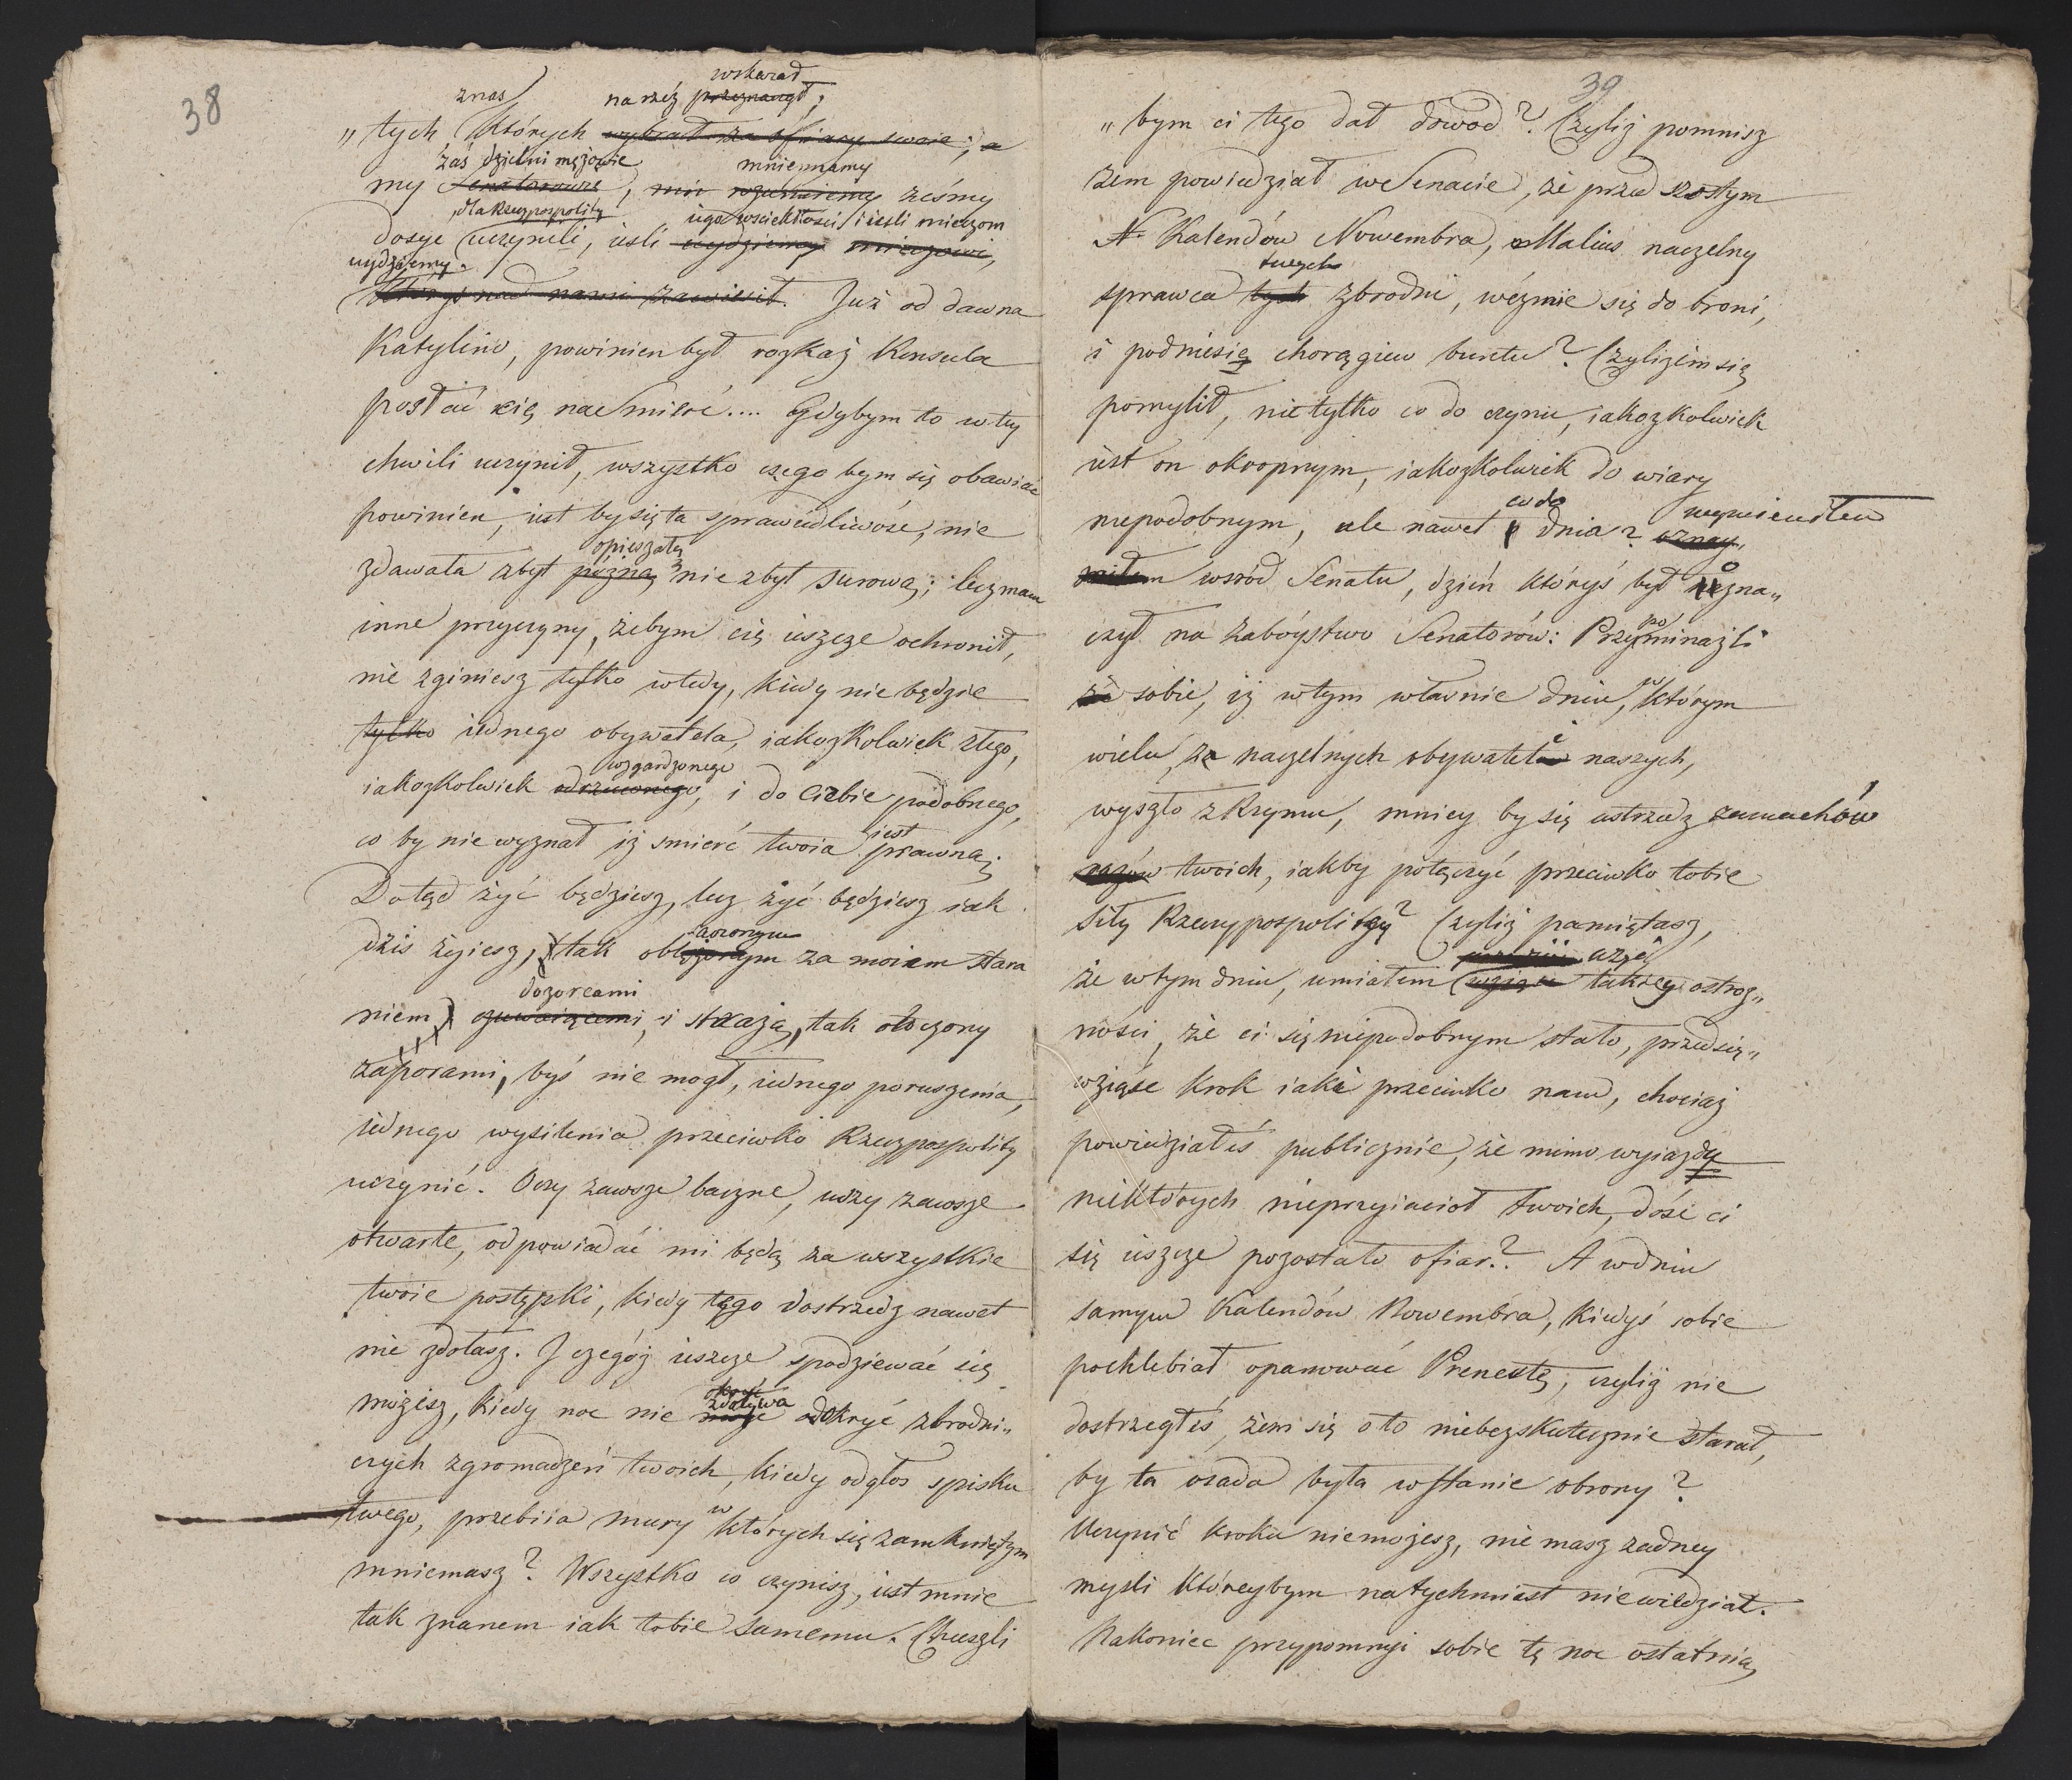 38
wskazał
znas na rzéź przeznaczył;
„ tych których wybrał za ofiary swoie; a
zaś dzielni mężowie mniemamy
my Senatorowie, żeśmy
dla Rzeczypospolitéy iego wsciekłości i iesli mieczom
dosyc uczynili, iesli uydziemy
uydziemy.
któryś nad nami zawiesił. Już od dawna
Katylino, powinien był rozkaz Konsula
posłać cię na Smierć.... Gdybym to w tey
chwili uczynił, wszystko czego bym się obawiać
powinien, iest by się ta sprawiedliwość, nie
opieszałą
zdawała zbyt póżną, nie zbyt surową; lecz mam
inne przyczyny, żebym cię ieszcze ochronił,
nie zginiesz tylko wtedy, kiedy nie będzie
tylko iednego obywatela, iakozkolwiek złego,
wzgardzonego
iakozkolwiek odrzuconego, i do Ciebie podobnego,
iest
co by nie wyznał iż smierć twoia prawną;
Dotąd żyć będziesz, lecz żyć będziesz iak
dzis żyiesz, tak za moiem stara
dozorcami
niem czuwaiącemi, i strażą, tak otoczony
zaporami, byś nie mogł, iednego poruszenia,
iednego wysilenia przeciwko Rzeczypospolitéy
uczynić. Oczy zawsze baczne, uszy zawsze
otwarte, odpowiadać mi będą za wszystkie
twoie postępki, kiedy tego dostrzedz nawet
nie zdołasz. I czegóż ieszcze spodziewać się
zdoływa
możesz, kiedy noc nie może okryć zbrodni„
czych zgromadzeń twoich, kiedy odgłos spisku
w
twego, przebiia mury których się zamkniętym
mniemasz? Wszystko co czynisz, iest mnie
tak znanem iak tobie samemu. Chceszli
39
„ bym ci tego dał dowod? Czyliż pomnisz
żem powiedział w Senacie, że przed szostym
Kalendów Nowembra, Malius naczelny
twych
sprawca tych zbrodni, weźmie się do broni,
i podniesie chorągiew buntu? Czyliżem się
pomylił, nie tylko co do czynu, iakozkolwiek
iest on okropnym, iakozkolwiek do wiary
co do wymieniłem
niepodobnym, ale nawet dnia? oznay„
miłem wsród Senatu, dzień któryś był ozna„
po
czył na zaboystwo Senatorów: Przyminażli
że sobie, iż w tym własnie dniu, w którym
wielu, z naczelnych obywateli naszych,
wyszło z Rzymu, mniey by się ustrzedz zamachów
razów twoich, iakby połączyć przeciwko tobie
siły Rzeczypospolitéy? Czyliż pamiętasz,
użyć
że w tym dniu, umiałem takiey ostroż„
nosci, że ci się niepodobnym stało, przedsię„
wziąść krok iaki przeciwko nam, chociaż
powiedziałeś publicznie, że mimo wyiazdu
niektórych nieprzyiacioł twoich, dość ci
się ieszcze pozostało ofiar? A w dniu
samym Kalendów Nowembra, kiedyś sobie
pochlebiał opanować Prenestę, czyliż nie
dostrzegłeś, żem się o to niebezskutecznie starał,
by ta osada była w stanie obrony?
Uczynić kroku niemożesz, nie masz żadney
mysli któreybym natychmiast niewiedział.
Nakoniec przypomniy sobie tę noc ostatnią,